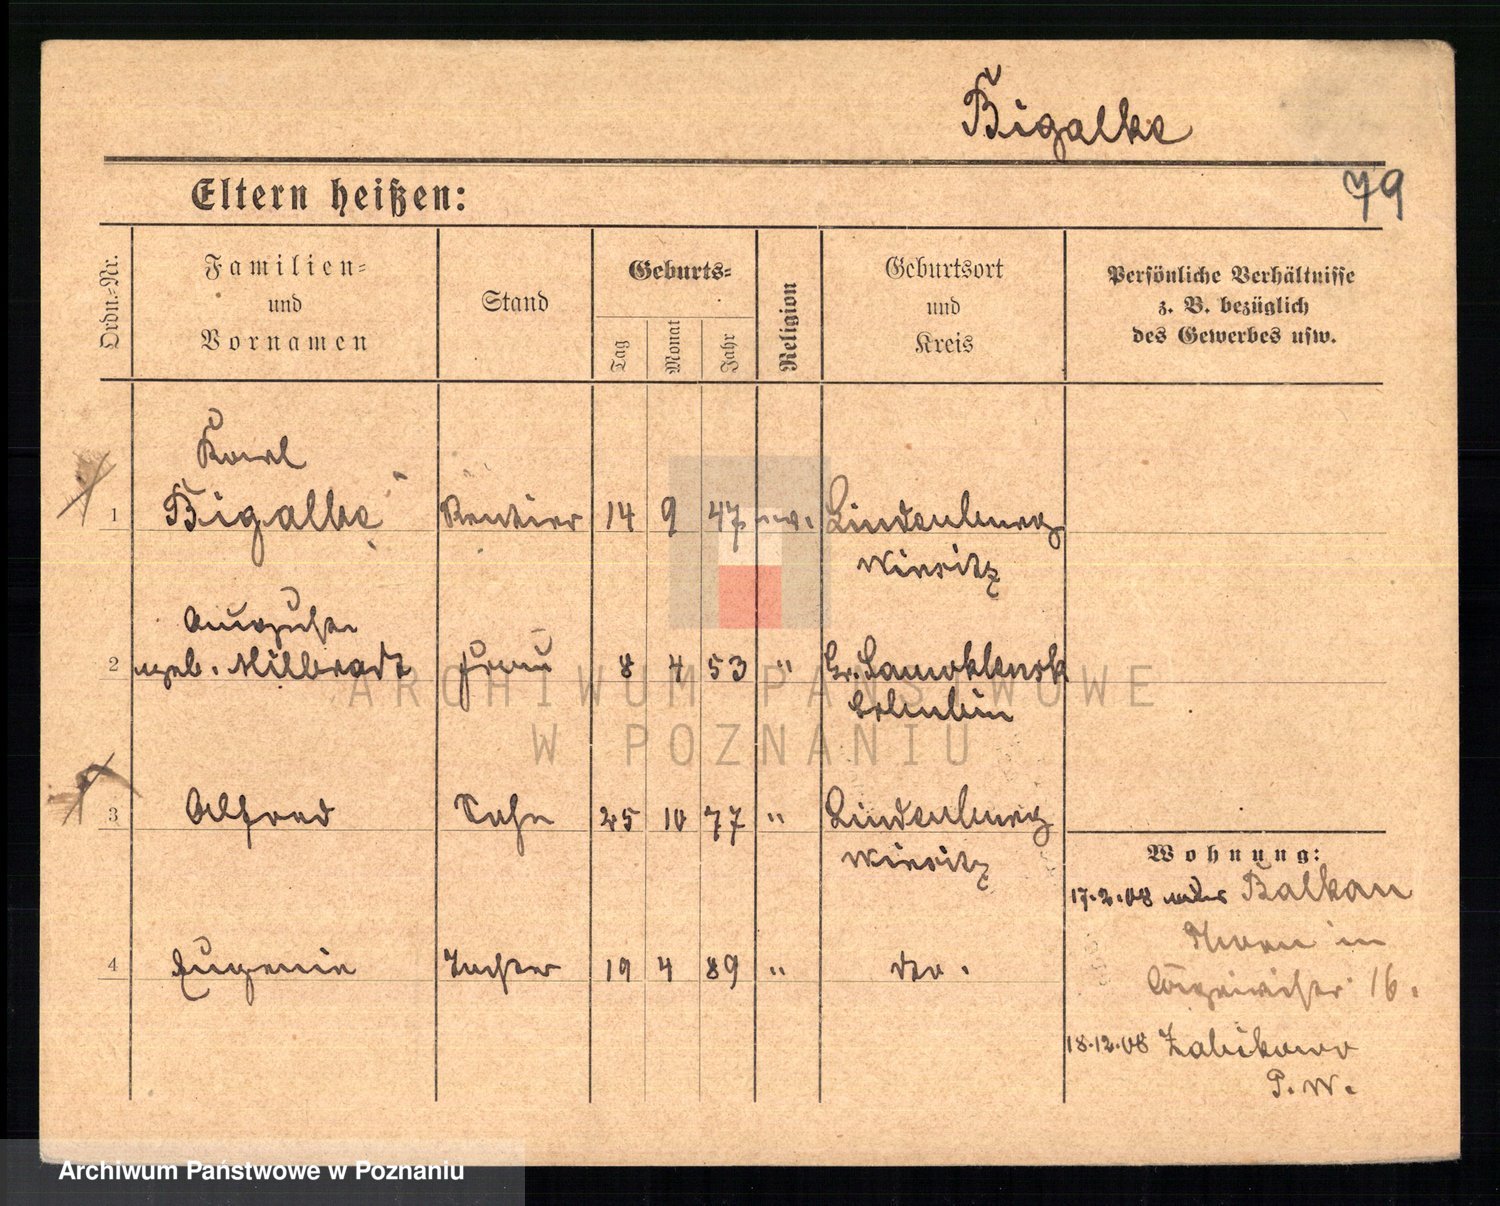 Bigalke
79
Eltern heißen:
Ordn.-Nr.
Familien-
und
Vornamen
Stand
Geburts-
Tag
Monat
Jahr
Religion
Geburtsort
und
Kreis
Persönliche Verhältnisse
z. B. bezüglich
des Gewerbes usw.
Karl
1 Bigalke Rentier 14 9 47 ev. Lindenburg
Wirsitz
Auguste
2 geb. Milbradt Frau 8 4 53 " Gr. Samoklensk
3 Alfred Sohn 25 10 77 " Lindenburg
Wirsitz
Wohnung:
17.2.08 Balkan
Thorn in
16.
4 Eugenie Tochter 19 4 89 " do.
18.12.08 Zabikowo
P. W.
ARCHIWUM PAŃSTWOWE
W POZNANIU
Archiwum Państwowe w Poznaniu